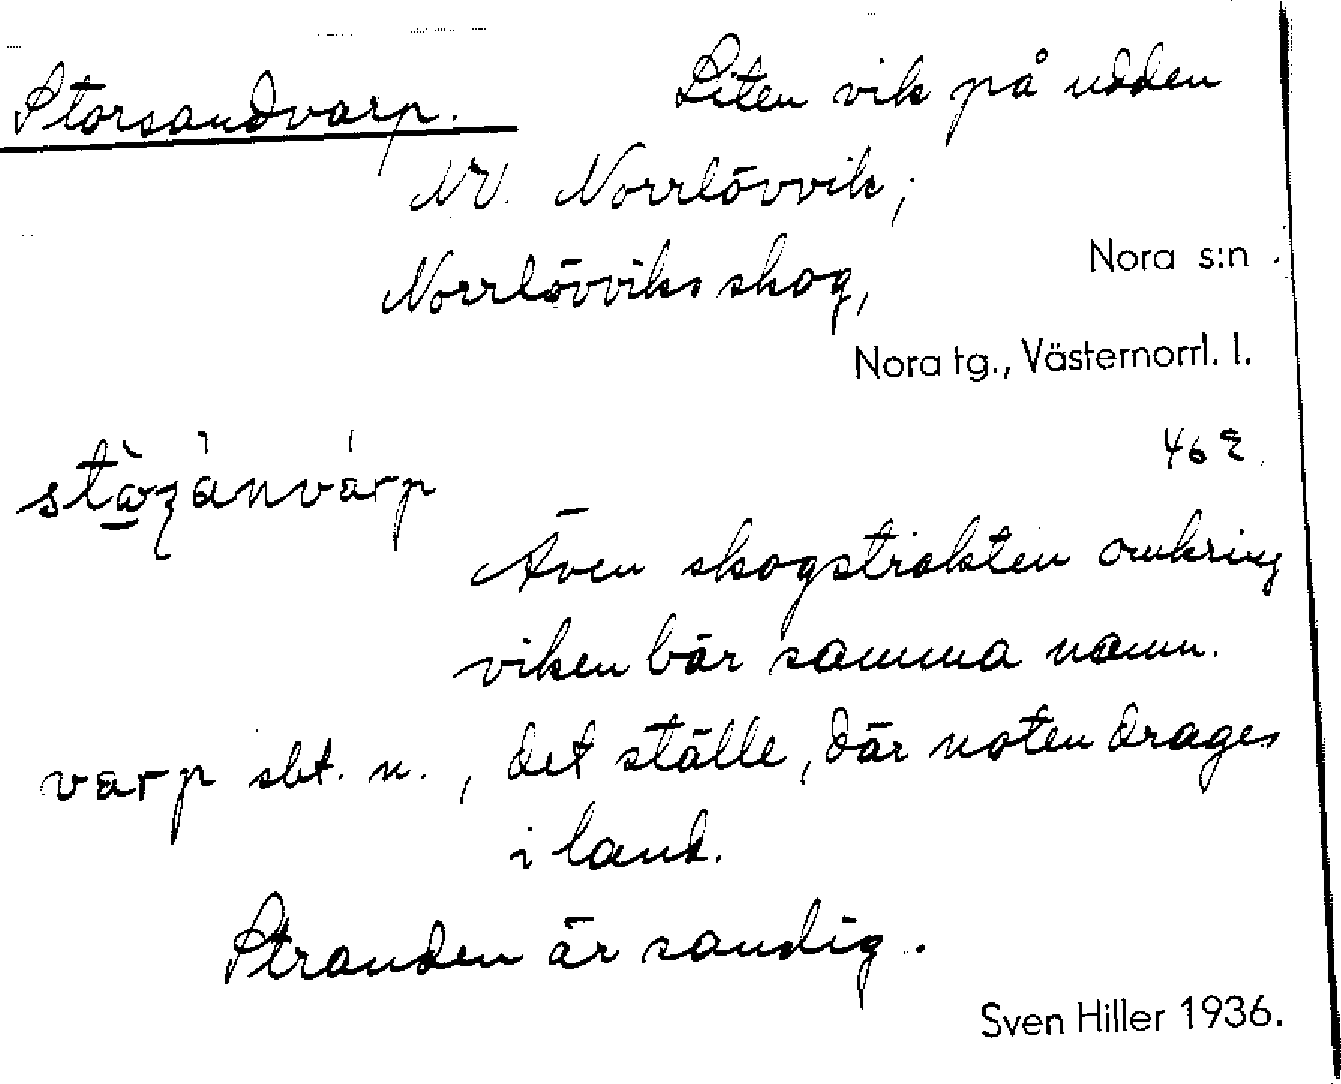 Storsandvarp. Liten vik på udden
NV. Norrlövvik;
Norrlövviks skog, Nora s:n
Nora tg., Västernorrl. l.
Även skogstrakten omkring
viken bär samma namn.
varp sbt. n., det ställe, där noten drages
i land.
Stranden är sandig.
Sven Hiller 1936.